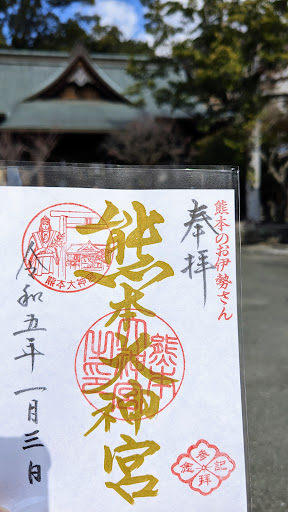 熊本のお伊勢さん
奉拝
熊本大神宮
熊本大神宮
令和五年一月三日
参拝記念